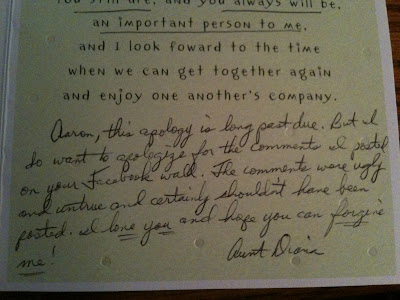 You still are, and you always will be,
an important person to me,
and I look foward to the time
when we can get together again
and enjoy one another's company.
Aaron, this apology is long past due. But I
do want to apologize for the comments I posted
on your Facebook wall. The comments were ugly
and untrue and certainly shouldn't have been
posted. I love you and hope you can forgive
me!
Aunt Diana